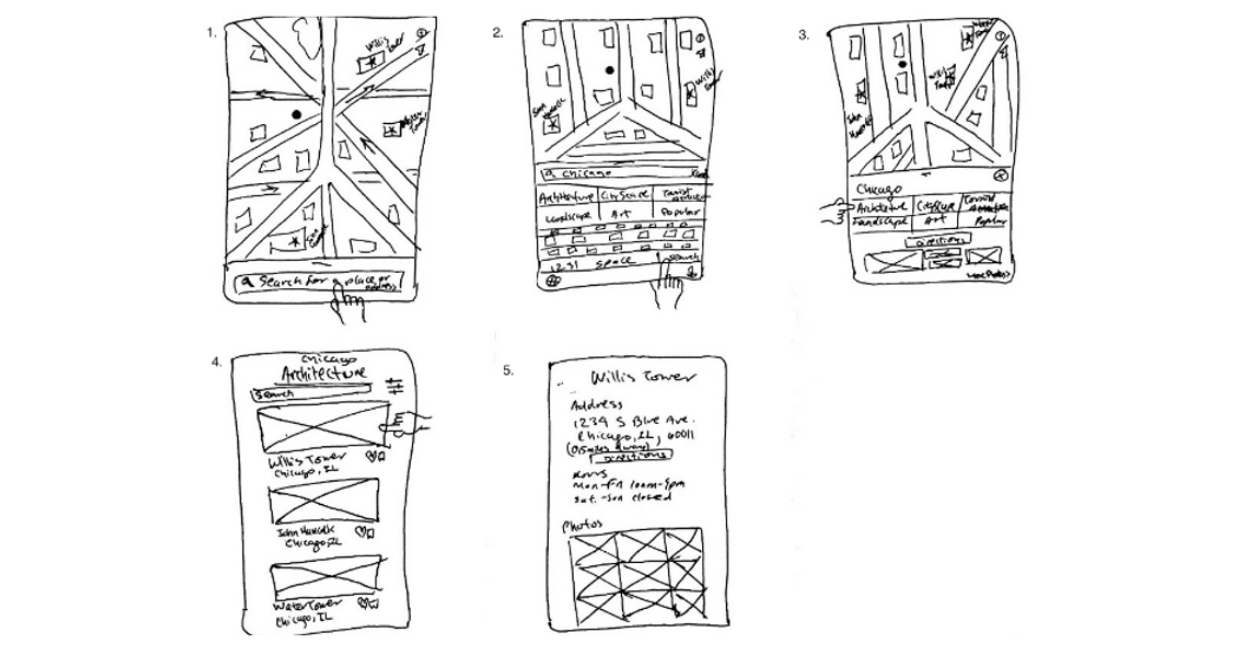 1.
Willis
Tower
Search for a place or
address
2.
Willis
Tower
John
Hancock
Chicago
Architecture CityScape Tourist
Landscape Art Popular
1231 space search
3.
Willis
Tower
John
Hancock
Chicago
Architecture CityScape Tourist
Landscape Art Popular
Directions
4.
Chicago
Architecture
Search
Willis Tower
Chicago, IL
John Hancock
Chicago IL
Water Tower
Chicago, IL
5.
Willis Tower
Address
1234 S Blue Ave.
Chicago, IL, 60011
Directions
Hours
Mon-Fri 10am-5pm
Sat.-Sun closed
Photos